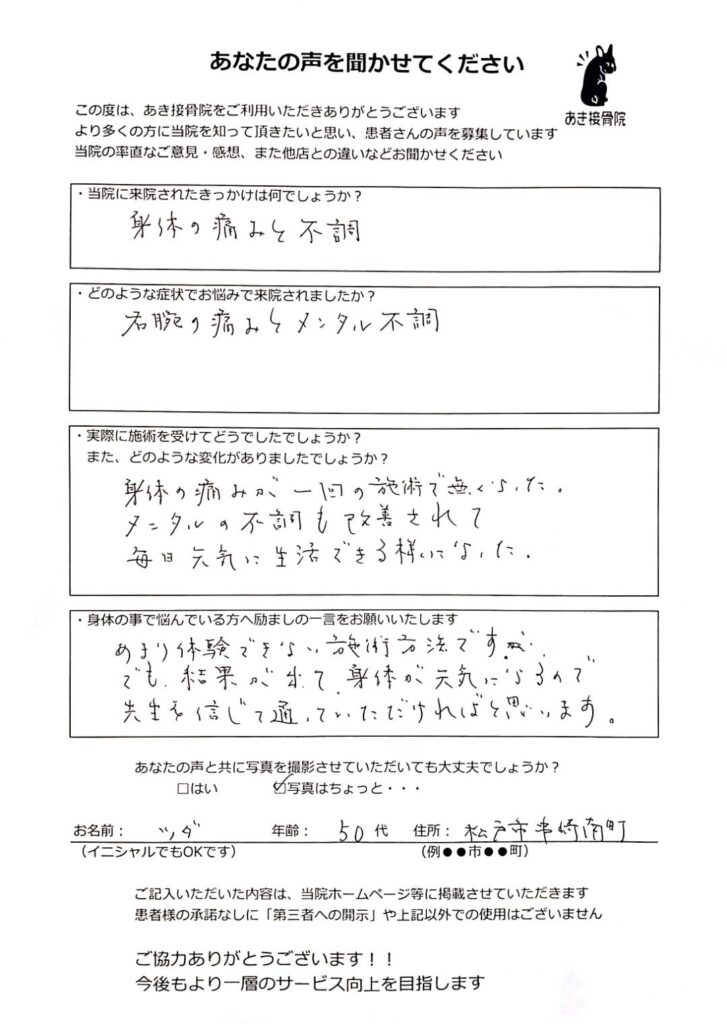 あなたの声を聞かせてください
あき接骨院
この度は、あき接骨院をご利用いただきありがとうございます
より多くの方に当院を知って頂きたいと思い、患者さんの声を募集しています
当院の率直なご意見・感想、また他店との違いなどお聞かせください
・当院に来院されたきっかけは何でしょうか？
身体の痛みと不調
・どのような症状でお悩みで来院されましたか？
右腕の痛みとメンタル不調
・実際に施術を受けてどうでしたでしょうか？
また、どのような変化がありましたでしょうか？
身体の痛みが一回の施術で無くなった。
メンタルの不調も改善されて
毎日元気に生活できる様になった。
・身体の事で悩んでいる方へ励ましの一言をお願いいたします
あまり体験できない施術方法ですが、
でも、結果が出て、身体が元気になるので
先生を信じて通っていただければと思います。
あなたの声と共に写真を撮影させていただいても大丈夫でしょうか？
□はい ☑写真はちょっと・・・
お名前： ツダ 年齢： 50代 住所： 松戸市串崎南町
（イニシャルでもOKです） （例●●市●●町）
ご記入いただいた内容は、当院ホームページ等に掲載させていただきます
患者様の承諾なしに「第三者への開示」や上記以外での使用はございません
ご協力ありがとうございます！！
今後もより一層のサービス向上を目指します